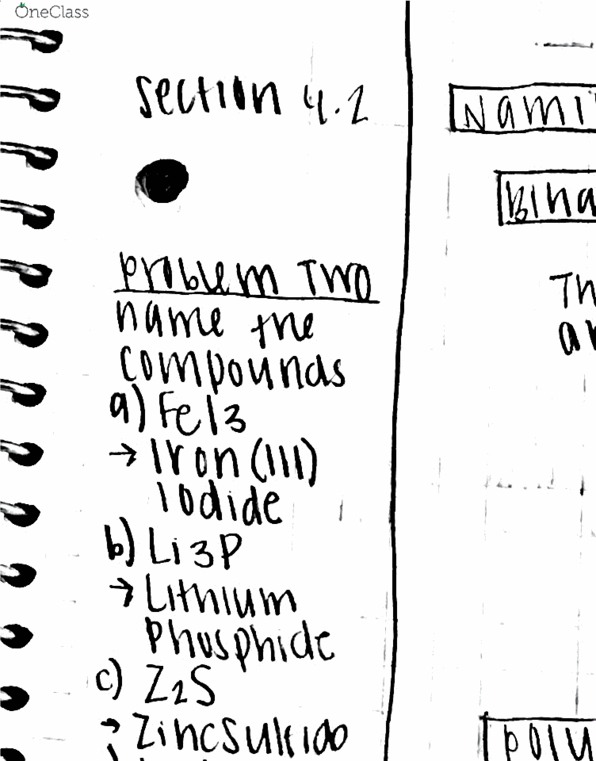 OneClass
section 4.2
Problem Two
name the
compounds
a) FeI3
→ Iron (III)
Iodide
b) Li3P
→ Lithium
Phosphide
c) Z2S
→ Zinc
Nami
Bina
Th
poly